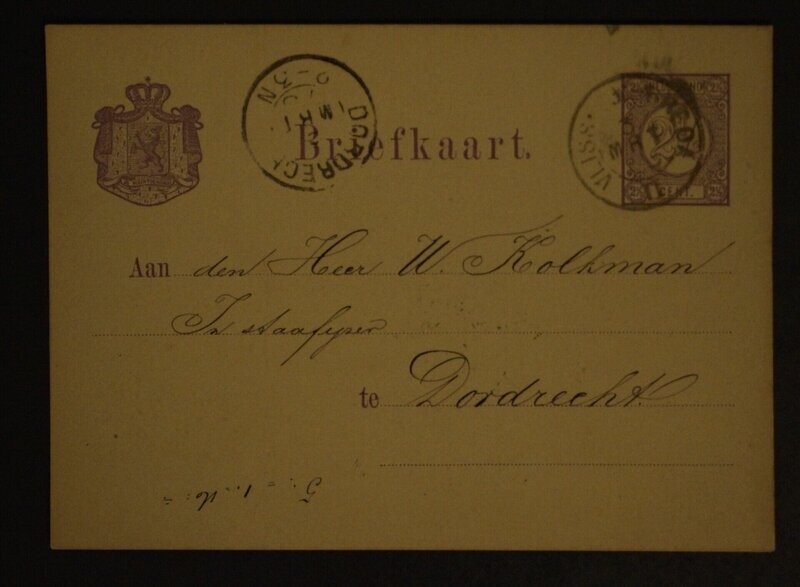 Briefkaart.
DORDRECHT
VLISS. BREDA
2½ CENT. 2½
Aan den Heer W. Kolkman
In staafyzer
te Dordrecht